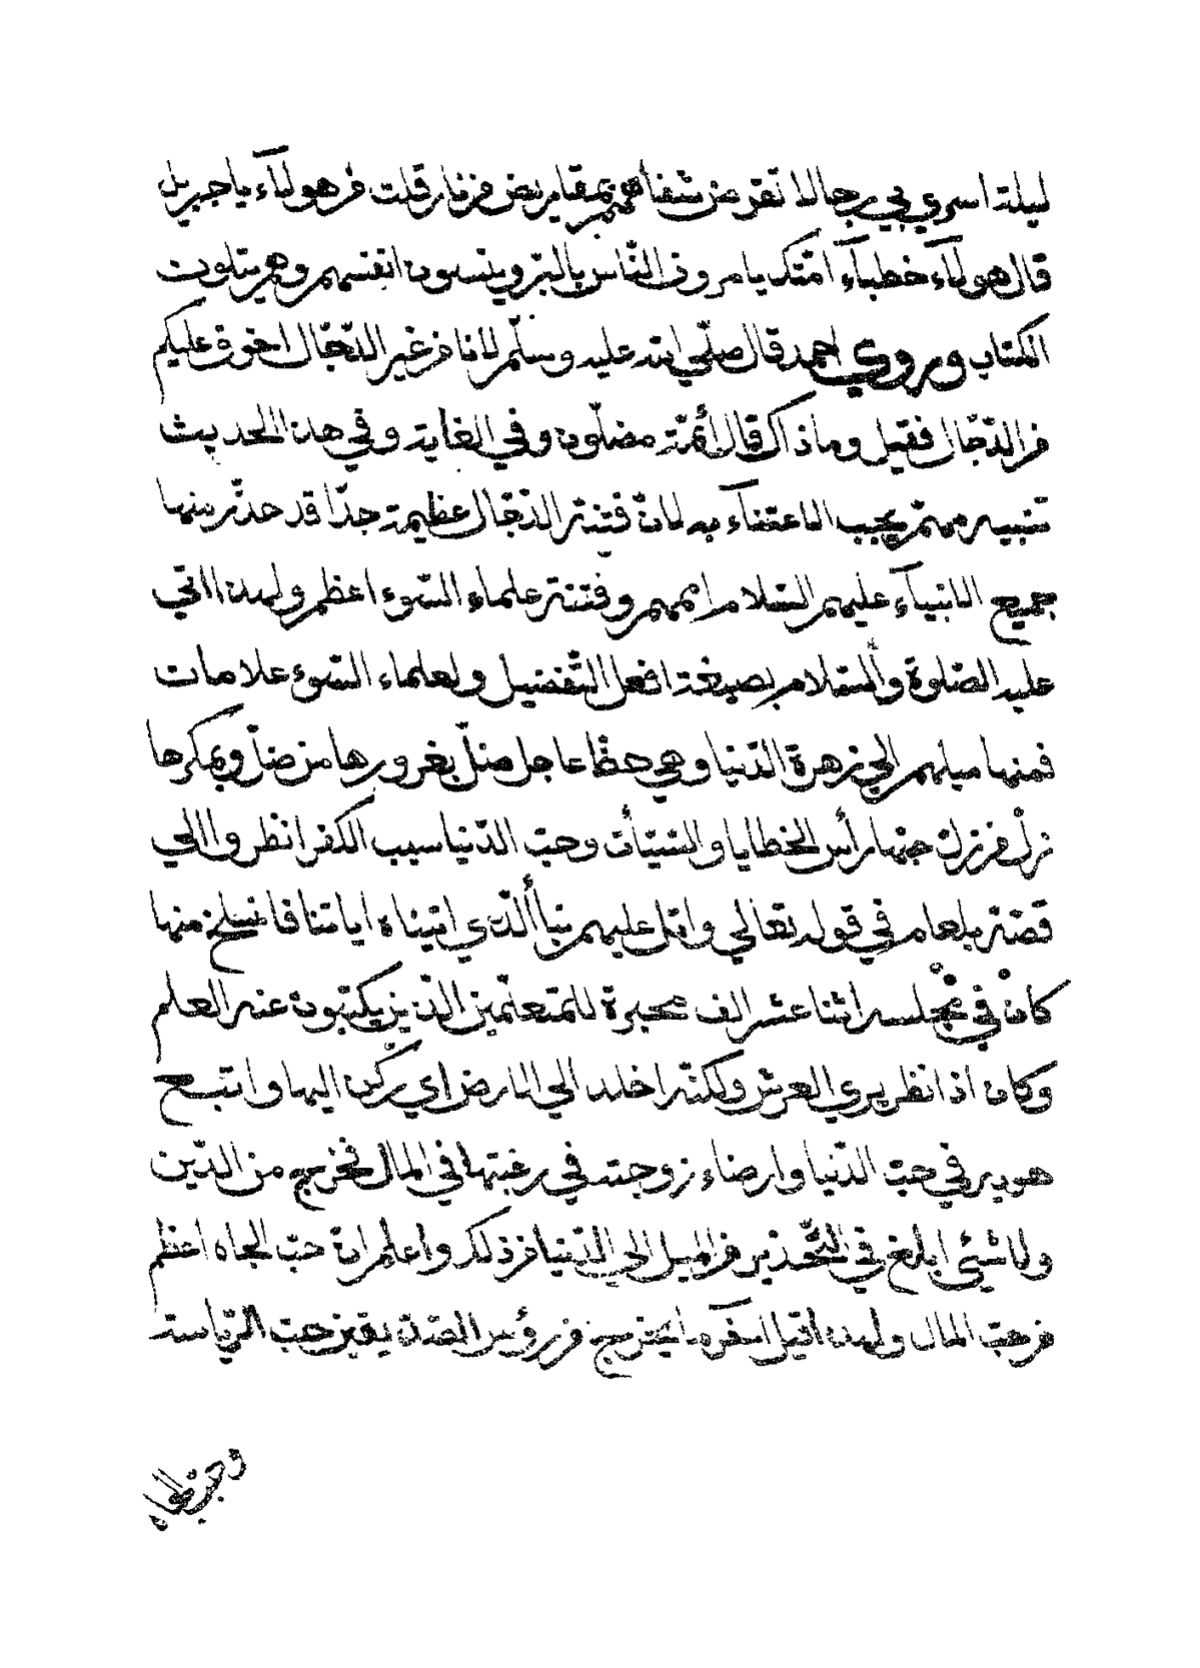 ليلة اسري بي رجالا تقرض شفاههم بمقاريض من نار قلت من هولاء يا جبريل
قال هولاء خطباء امتك يامرون الناس بالبر وينسون انفسهم وهم يتلون
الكتاب وروي احمد قال صلّي الله عليه وسلّم لانا من غير الدّجّال اخوف عليكم
من الدّجّال فقيل وما ذاك قال أئمّة مضلّون وفي الغاية وفي هذا الحديث
تنبيه مهمّ يجب الاعتناء به لانّ فتنة الدّجّال عظيمة جدّا قد حذّر منها
جميع الانبياء عليهم السّلام اممهم وفتنة علماء السّوء اعظم ولهذا اتي
عليه الصّلوة والسّلام بصيغة افعل التّفضيل ولعلماء السّوء علامات
فمنها ميلهم الي زهرة الدّنيا وهي حظّ عاجل ضلّ بغرورها من ضلّ وبمكرها
زلّ من زلّ حبّها رأس الخطايا والسّيّأت وحبّ الدّنيا سبب الكفر انظروا الي
قصّة بلعام في قوله تعالي واتل عليهم نبأ الّذي اتيناه اياتنا فانسلخ منها
كان في مجلسه اثنا عشر الف محبرة للمتعلّمين الّذين يكتبون عنه العلم
وكان اذا نظر يري العرش ولكنّه اخلد الي الارض اي ركن اليها واتبع
هويه في حبّ الدّنيا وارضاء زوجته في رغبتها في المال فخرج من الدّين
ولا شيئ ابلغ في التّحذير من الميل الي الدّنيا من ذلك واعلم انّ حبّ الجاه اعظم
من حبّ المال ولهذا قيل اخر ما يخرج من رؤس الصّدّيقين حبّ الرّياسة
وحبّ الجاه